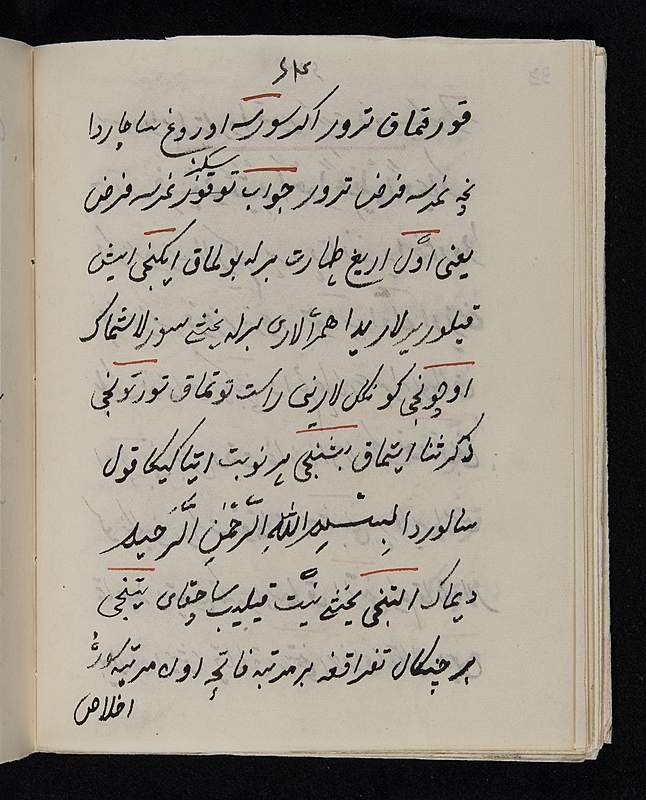 قورقماق ترور اکر سورسه اوروغ ساچاردا
سکز
نچه نمرسه فرض ترور جواب توقوز نمرسه فرض
یعنی اوّل اریغ طهارت برله بولماق ایکنجی ایش
قیلور یرلاریدا همرالاری برله یخشی سوزلاشماک
اوچونجی کونکل لارینی راست توتماق تورتونجی
ذکر ثنا ایتماق بشنجی هر نوبت ایتاکیکا قول
سالوردا بِسْــمِ اللّٰهِ الرَّحْمٰنِ الَّرحیم
دیماک التنجی یخشی نیّت قیلیب ساچقای یتنجی
هر چنکال تفراقغه بر مرتبه فاتحه اون مرتبه سورهٔ
اخلاص